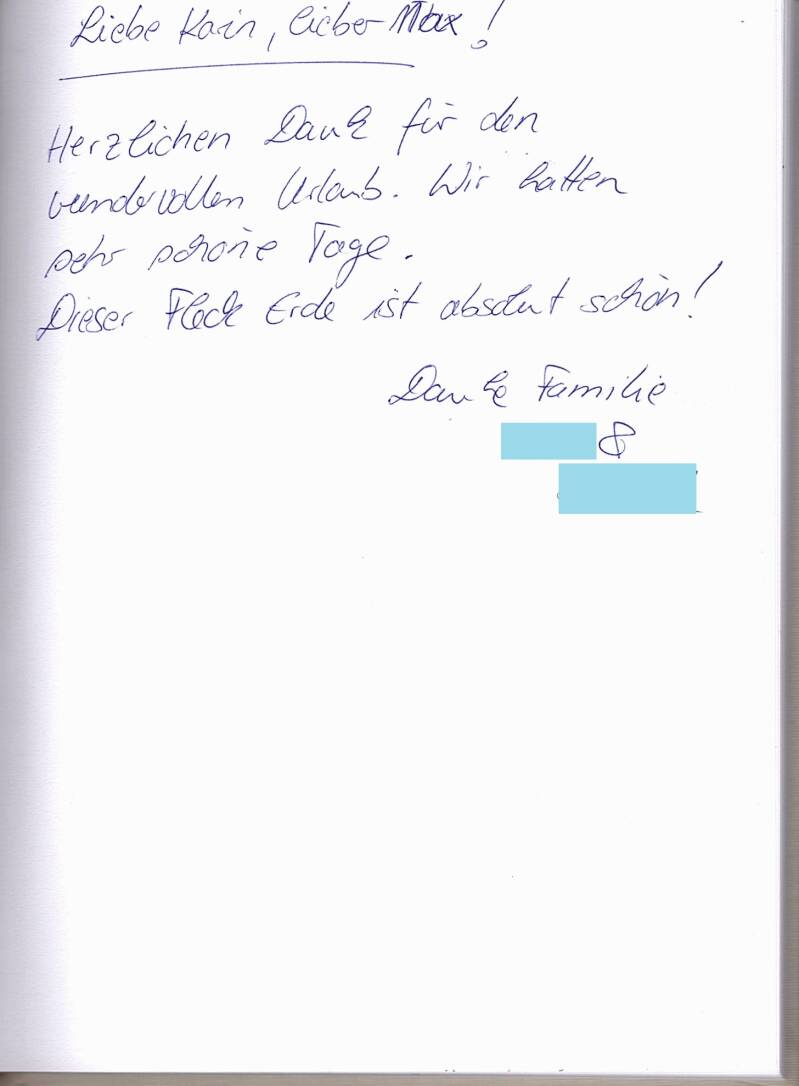 Liebe Karin, lieber Max!
Herzlichen Dank für den
wundervollen Urlaub. Wir hatten
sehr schöne Tage.
Dieser Fleck Erde ist absolut schön!
Danke Familie
&